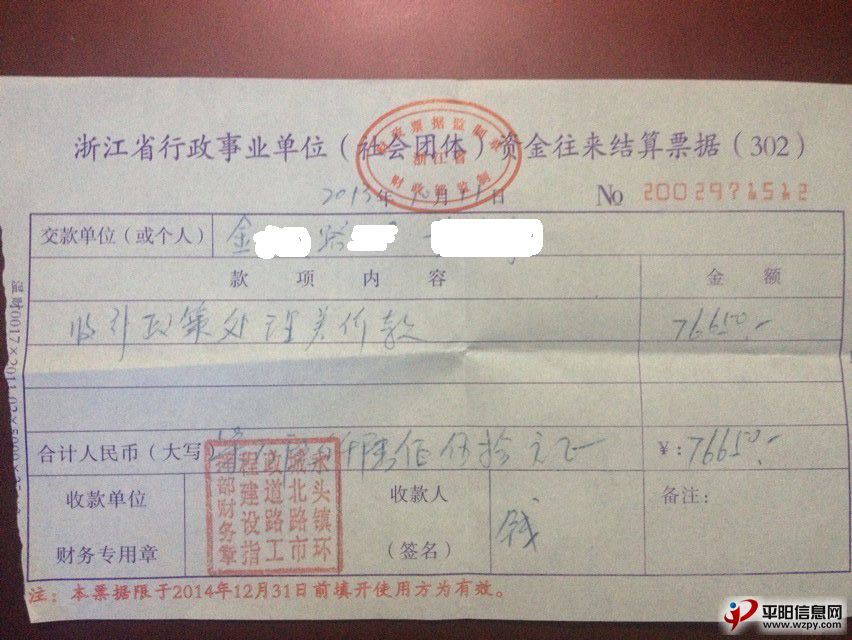 浙江省行政事业单位(社会团体)资金往来结算票据(302)
浙江省
2013年10月11日 No 2002971512
交款单位(或个人) 金 路
款项内容 金额
收到政策处理差价款 76650.-
合计人民币(大写) 仟陆佰伍拾元正 ¥:76650.-
收款单位 财务专用章
水头镇环城北路市政道路工程建设指挥部财务章
收款人 (签名) 钱
备注:
注:本票据限于2014年12月31日前填开使用方为有效。
平阳信息网
www.wzpy.com